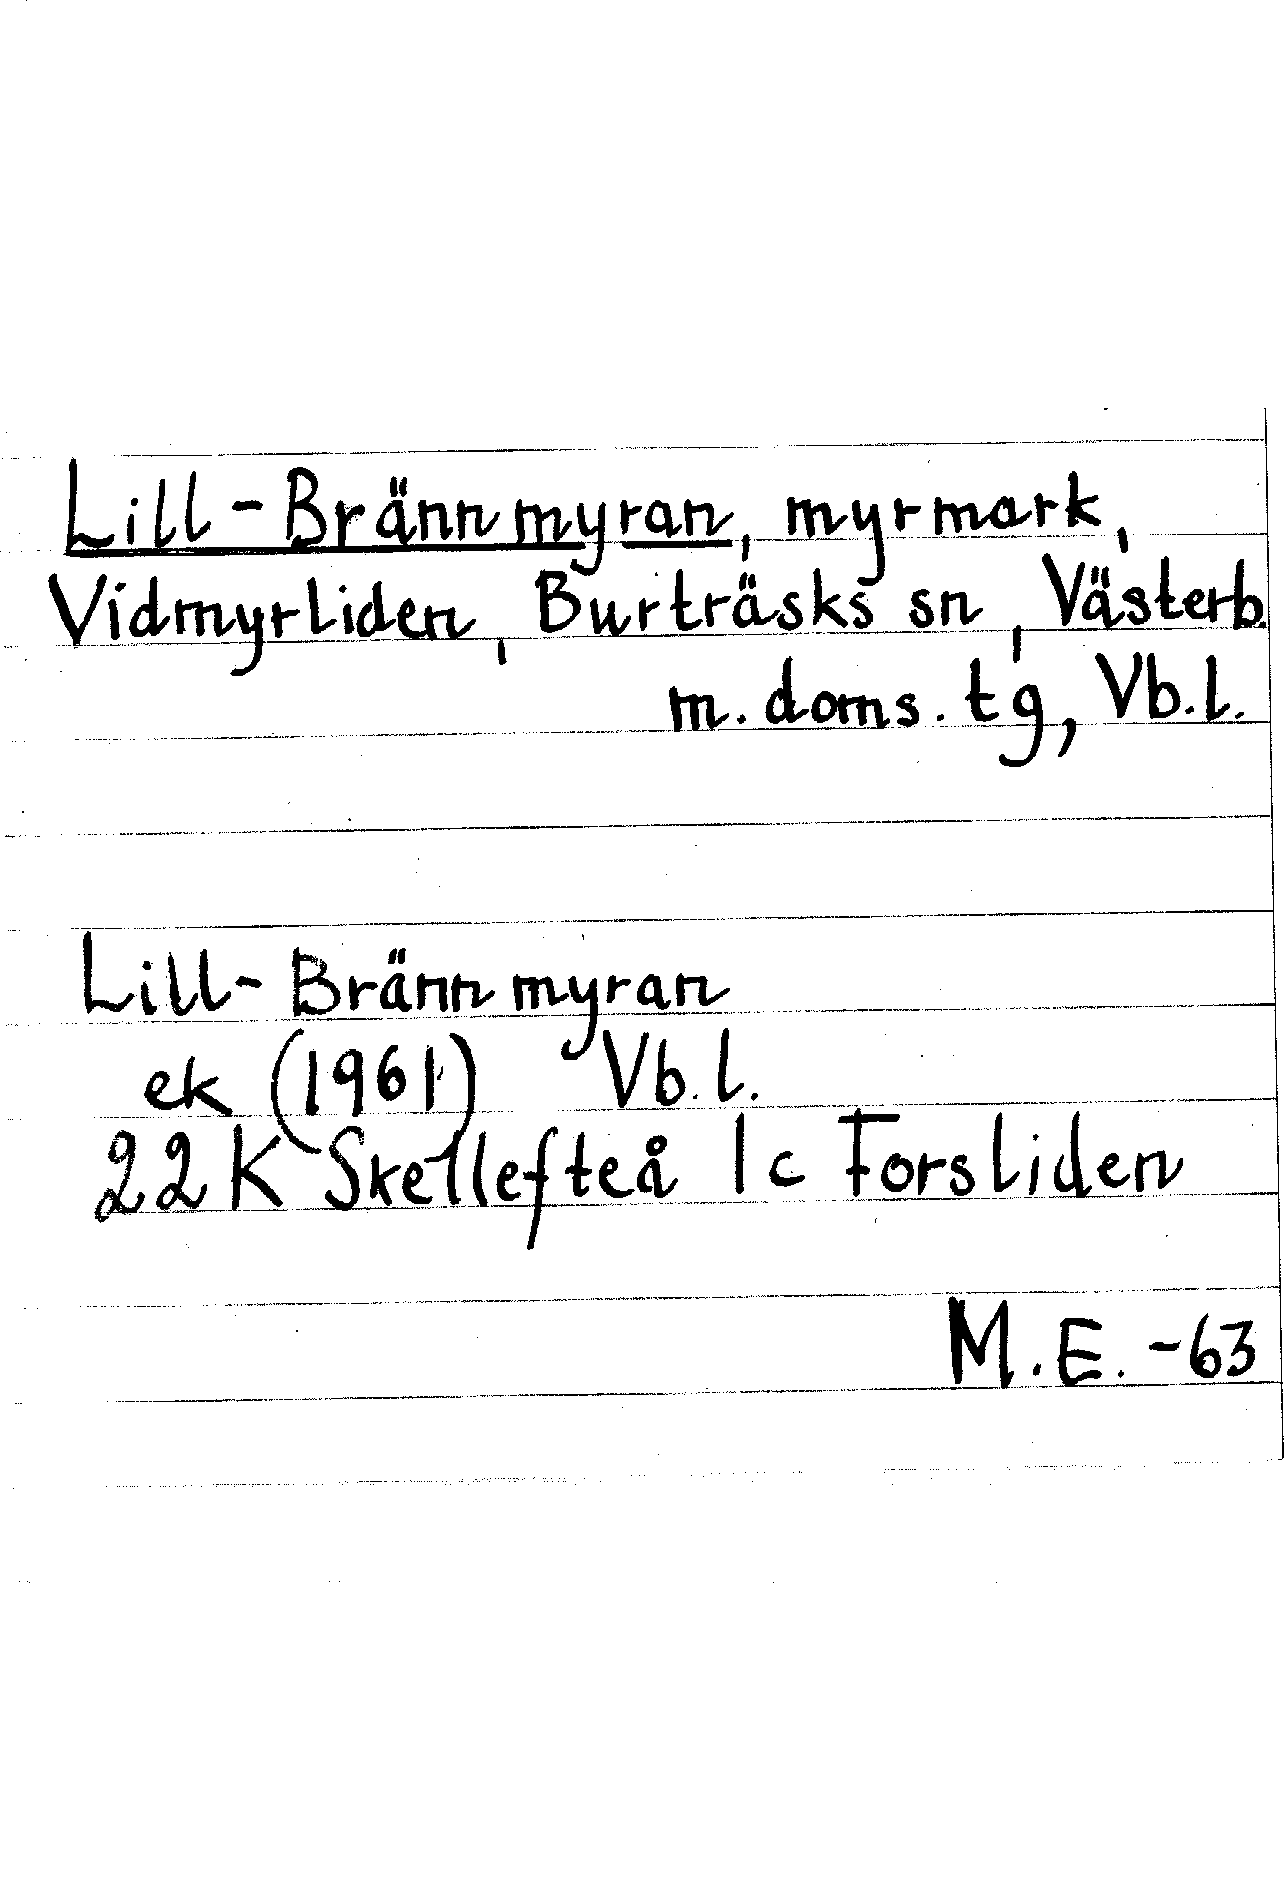 Lill-Brännmyran, myrmark,
Vidmyrliden, Burträsks sn, Västerb.
m. doms. tg, Vb.l.
Lill-Brännmyran
ek (1961) Vb.l.
22K Skellefteå 1c Forsliden
M.E. -63